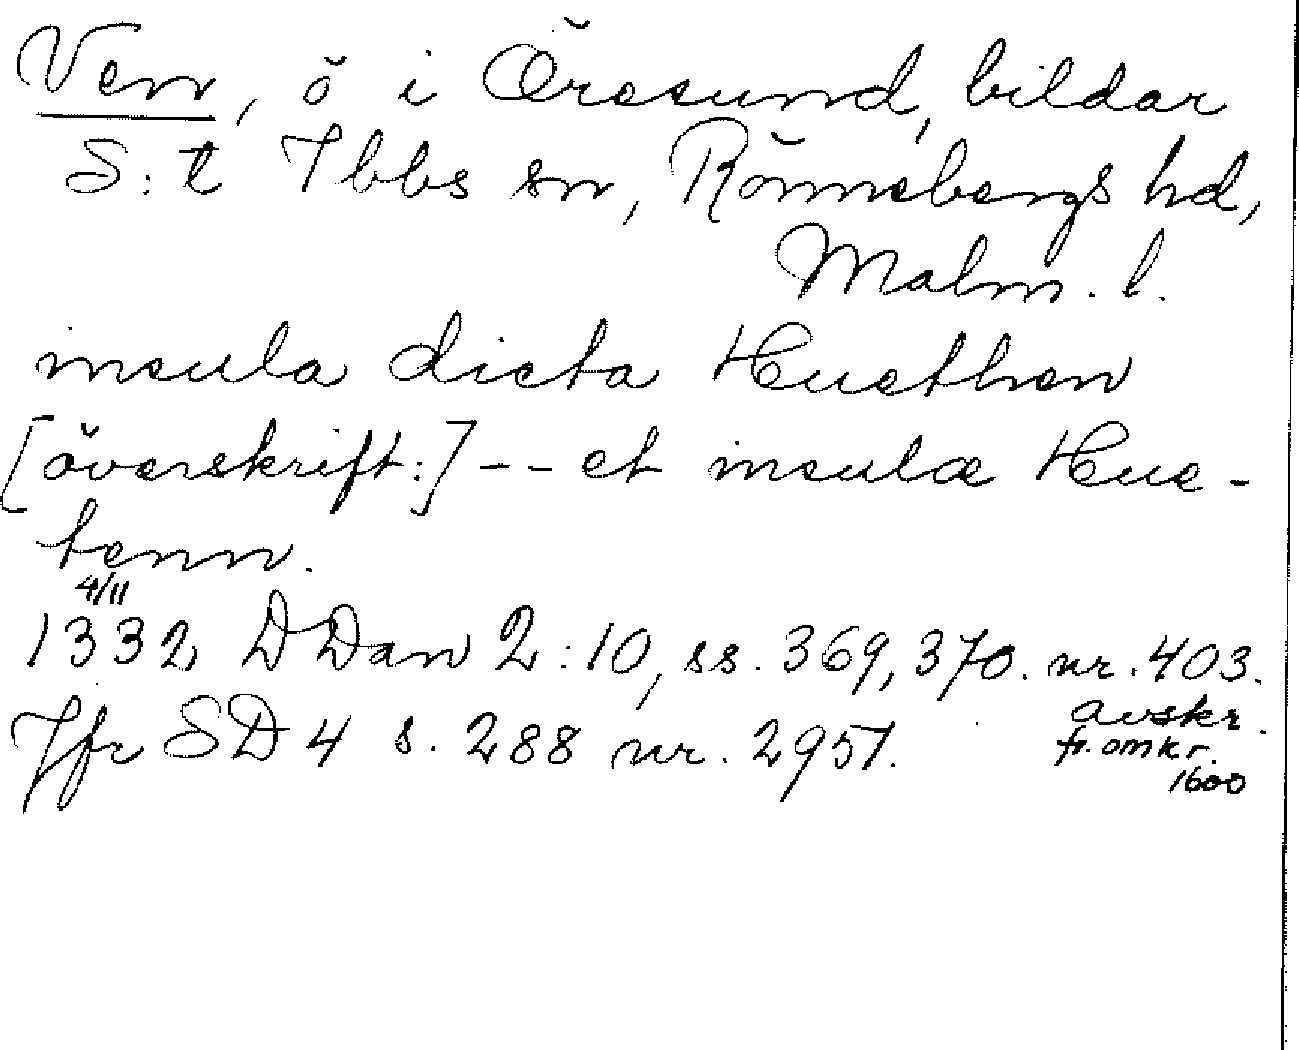 Ven, ö i Öresund, bildar
S:t Ibbs sn, Rönnebergs hd,
Malm. l.
insula dicta Huethen
[överskrift:] -- et insulæ Hue-
tenn.
4/11
1332, DDan 2:10, ss. 369, 370. nr. 403.
avskr.
fr. omkr.
1600
Jfr SD 4 s. 288 nr. 2957.